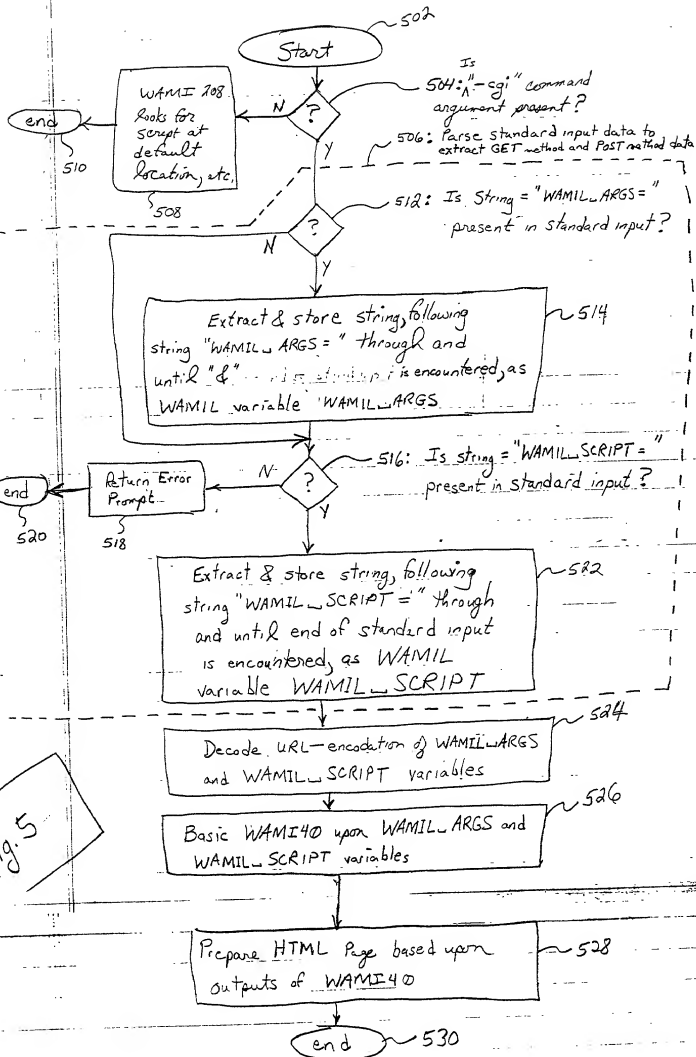 502
Start
Is
504: "-cgi" command
argument present?
?
N
Y
WAMI 208
looks for
script at
default
location, etc.
508
end
510
506: Parse standard input data to
extract GET method and POST method data
512: Is String = "WAMIL_ARGS="
present in standard input?
?
N
Y
Extract & store string, following
string "WAMIL_ARGS=" through and
until "&" is encountered, as
WAMIL variable WAMIL_ARGS
514
516: Is string = "WAMIL_SCRIPT="
present in standard input?
?
N
Y
Return Error
Prompt
518
end
520
Extract & store string, following
string "WAMIL_SCRIPT=" through
and until end of standard input
is encountered, as WAMIL
variable WAMIL_SCRIPT
522
524
Decode URL-encodation of WAMIL_ARGS
and WAMIL_SCRIPT variables
526
Basic WAMI40 upon WAMIL_ARGS and
WAMIL_SCRIPT variables
ig. 5
Prepare HTML Page based upon
outputs of WAMI40
528
end
530